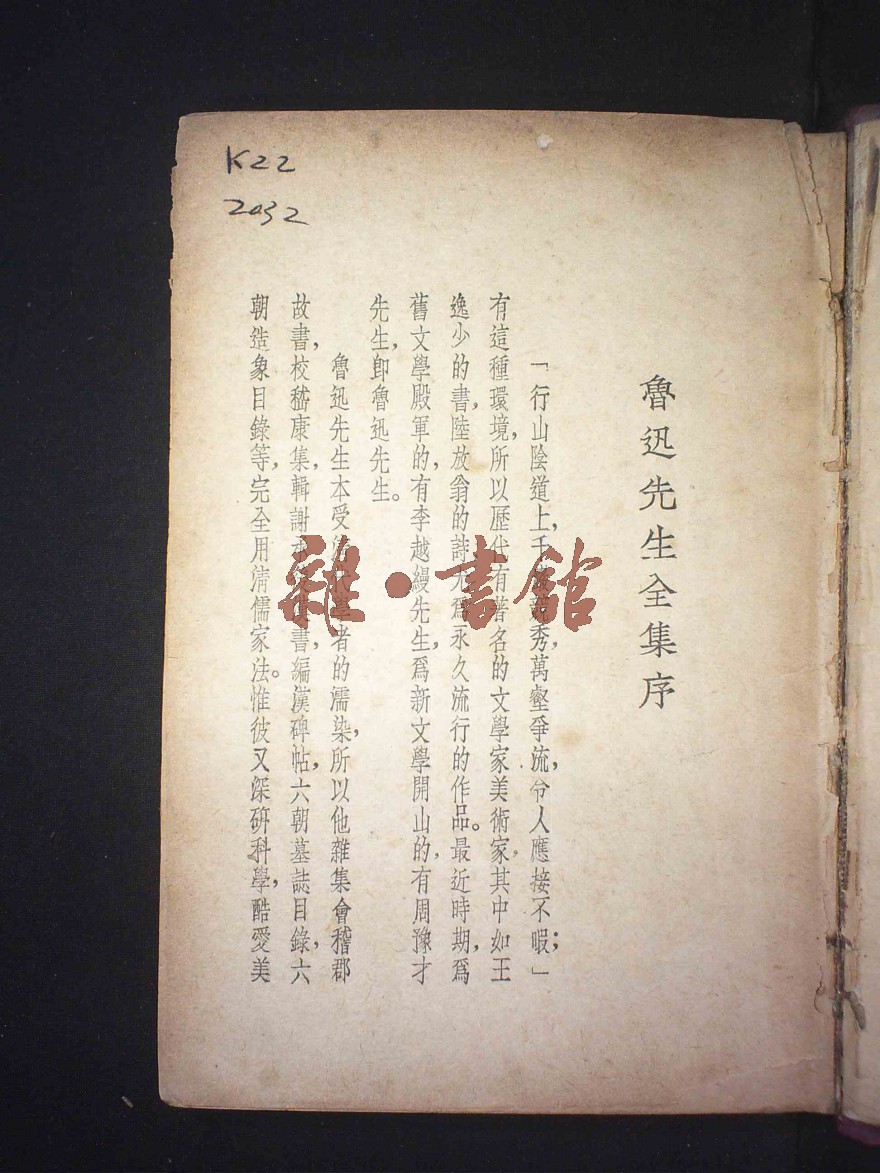 K22
2032
魯迅先生全集序
「行山陰道上,千競秀,萬壑爭流,令人應接不暇;」
有這種環境,所以歷代有著名的文學家美術家,其中如王
逸少的書,陸放翁的詩,尤爲永久流行的作品。最近時期,爲
舊文學殿軍的,有李越縵先生,爲新文學開山的,有周豫才
先生,卽魯迅先生。
魯迅先生本受清代學者的濡染,所以他雜集會稽郡
故書,校嵇康集,輯謝承書,編漢碑帖,六朝墓誌目錄,六
朝造象目錄等,完全用清儒家法。惟彼又深研科學,酷愛美
雜·書館